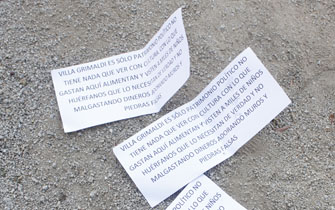 VILLA GRIMALDI ES SÓLO PATRIMONIO POLÍTICO NO
TIENE NADA QUE VER CON CULTURA CON LO QUE
GASTAN AQUÍ ALIMENTAN Y VISTEN A MILES DE NIÑOS
HUÉRFANOS QUE LO NECESITAN DE VERDAD Y NO
MALGASTANDO DINEROS ADORANDO MUROS Y
PIEDRAS
VILLA GRIMALDI ES SÓLO PATRIMONIO POLÍTICO NO
TIENE NADA QUE VER CON CULTURA CON LO QUE
GASTAN AQUÍ ALIMENTAN Y VISTEN A MILES DE NIÑOS
HUÉRFANOS QUE LO NECESITAN DE VERDAD Y NO
MALGASTANDO DINEROS ADORANDO MUROS Y
PIEDRAS
NO